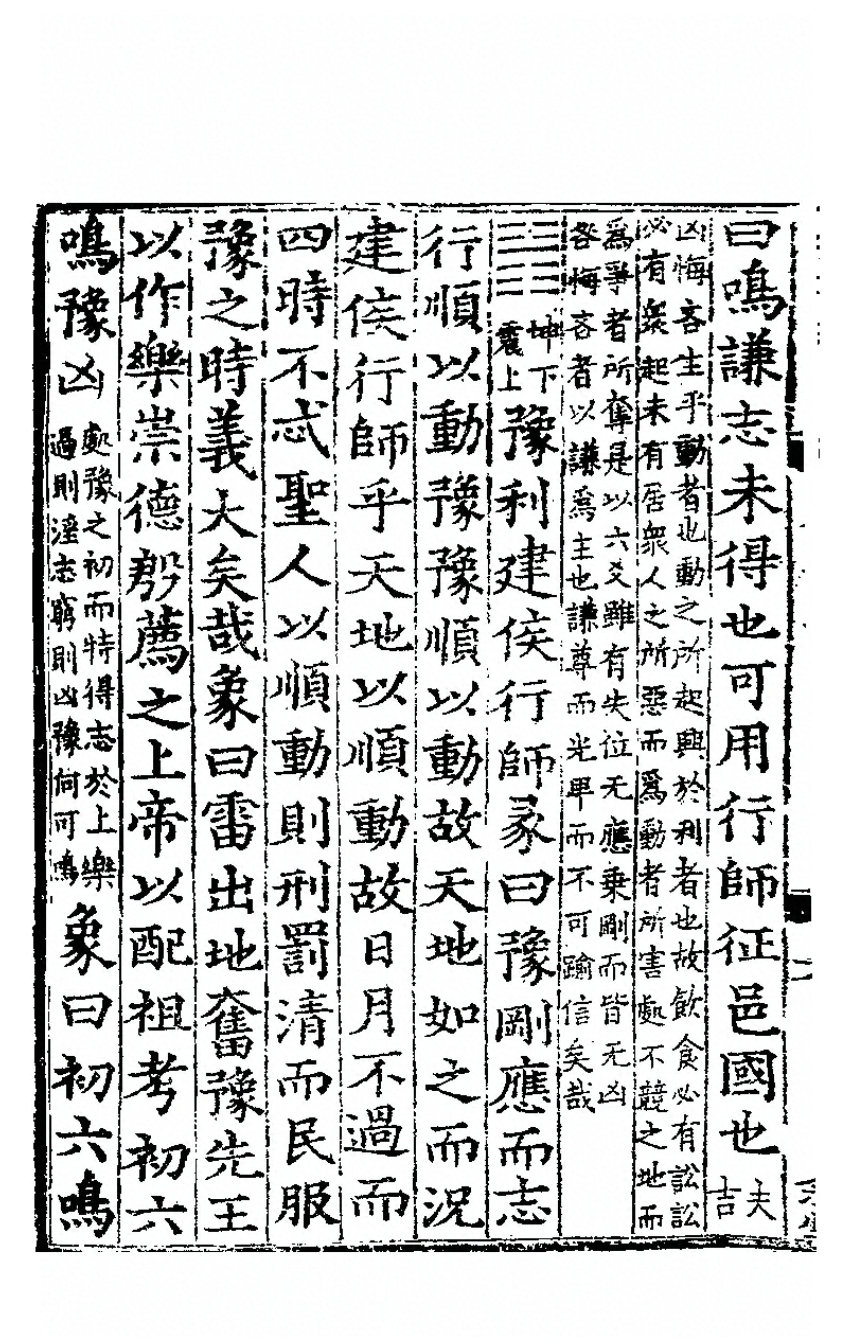 曰鳴謙志未得也可用行師征邑國也夫吉
凶悔吝生乎動者也動之所起興於利者也故飲食必有訟訟
必有衆起未有居衆人之所惡而爲動者所害處不競之地而
爲爭者所奪是以六爻雖有失位无應乘剛而皆无凶
咎悔吝者以謙爲主也謙尊而光卑而不可踰信矣哉
䷏坤下震上豫利建侯行師彖曰豫剛應而志
行順以動豫豫順以動故天地如之而況
建侯行師乎天地以順動故日月不過而
四時不忒聖人以順動則刑罰清而民服
豫之時義大矣哉象曰雷出地奮豫先王
以作樂崇德殷薦之上帝以配祖考初六
鳴豫凶處豫之初而特得志於上樂過則淫志窮則凶豫何可鳴象曰初六鳴